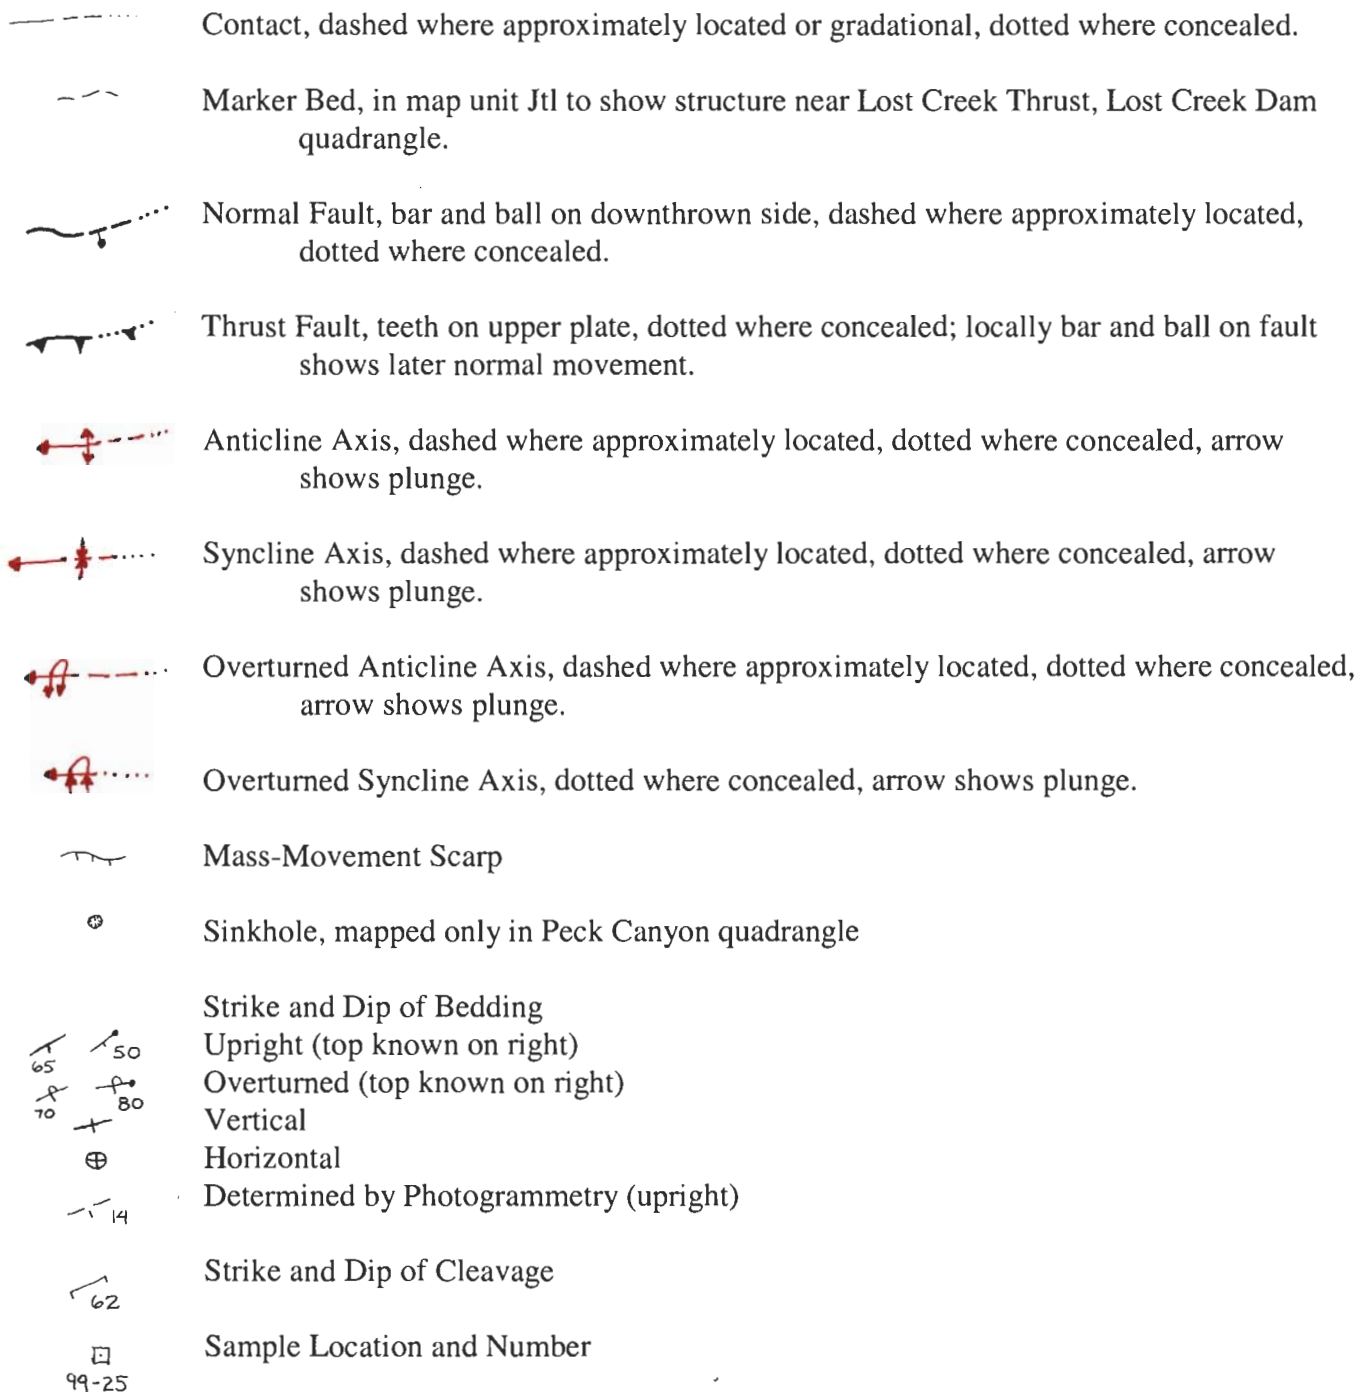 Contact, dashed where approximately located or gradational, dotted where concealed.
Marker Bed, in map unit Jtl to show structure near Lost Creek Thrust, Lost Creek Dam
quadrangle.
Normal Fault, bar and ball on downthrown side, dashed where approximately located,
dotted where concealed.
Thrust Fault, teeth on upper plate, dotted where concealed; locally bar and ball on fault
shows later normal movement.
Anticline Axis, dashed where approximately located, dotted where concealed, arrow
shows plunge.
Syncline Axis, dashed where approximately located, dotted where concealed, arrow
shows plunge.
Overturned Anticline Axis, dashed where approximately located, dotted where concealed,
arrow shows plunge.
Overturned Syncline Axis, dotted where concealed, arrow shows plunge.
Mass-Movement Scarp
Sinkhole, mapped only in Peck Canyon quadrangle
Strike and Dip of Bedding
65 50 Upright (top known on right)
70 80 Overturned (top known on right)
Vertical
Horizontal
14 Determined by Photogrammetry (upright)
62 Strike and Dip of Cleavage
Sample Location and Number
99-25